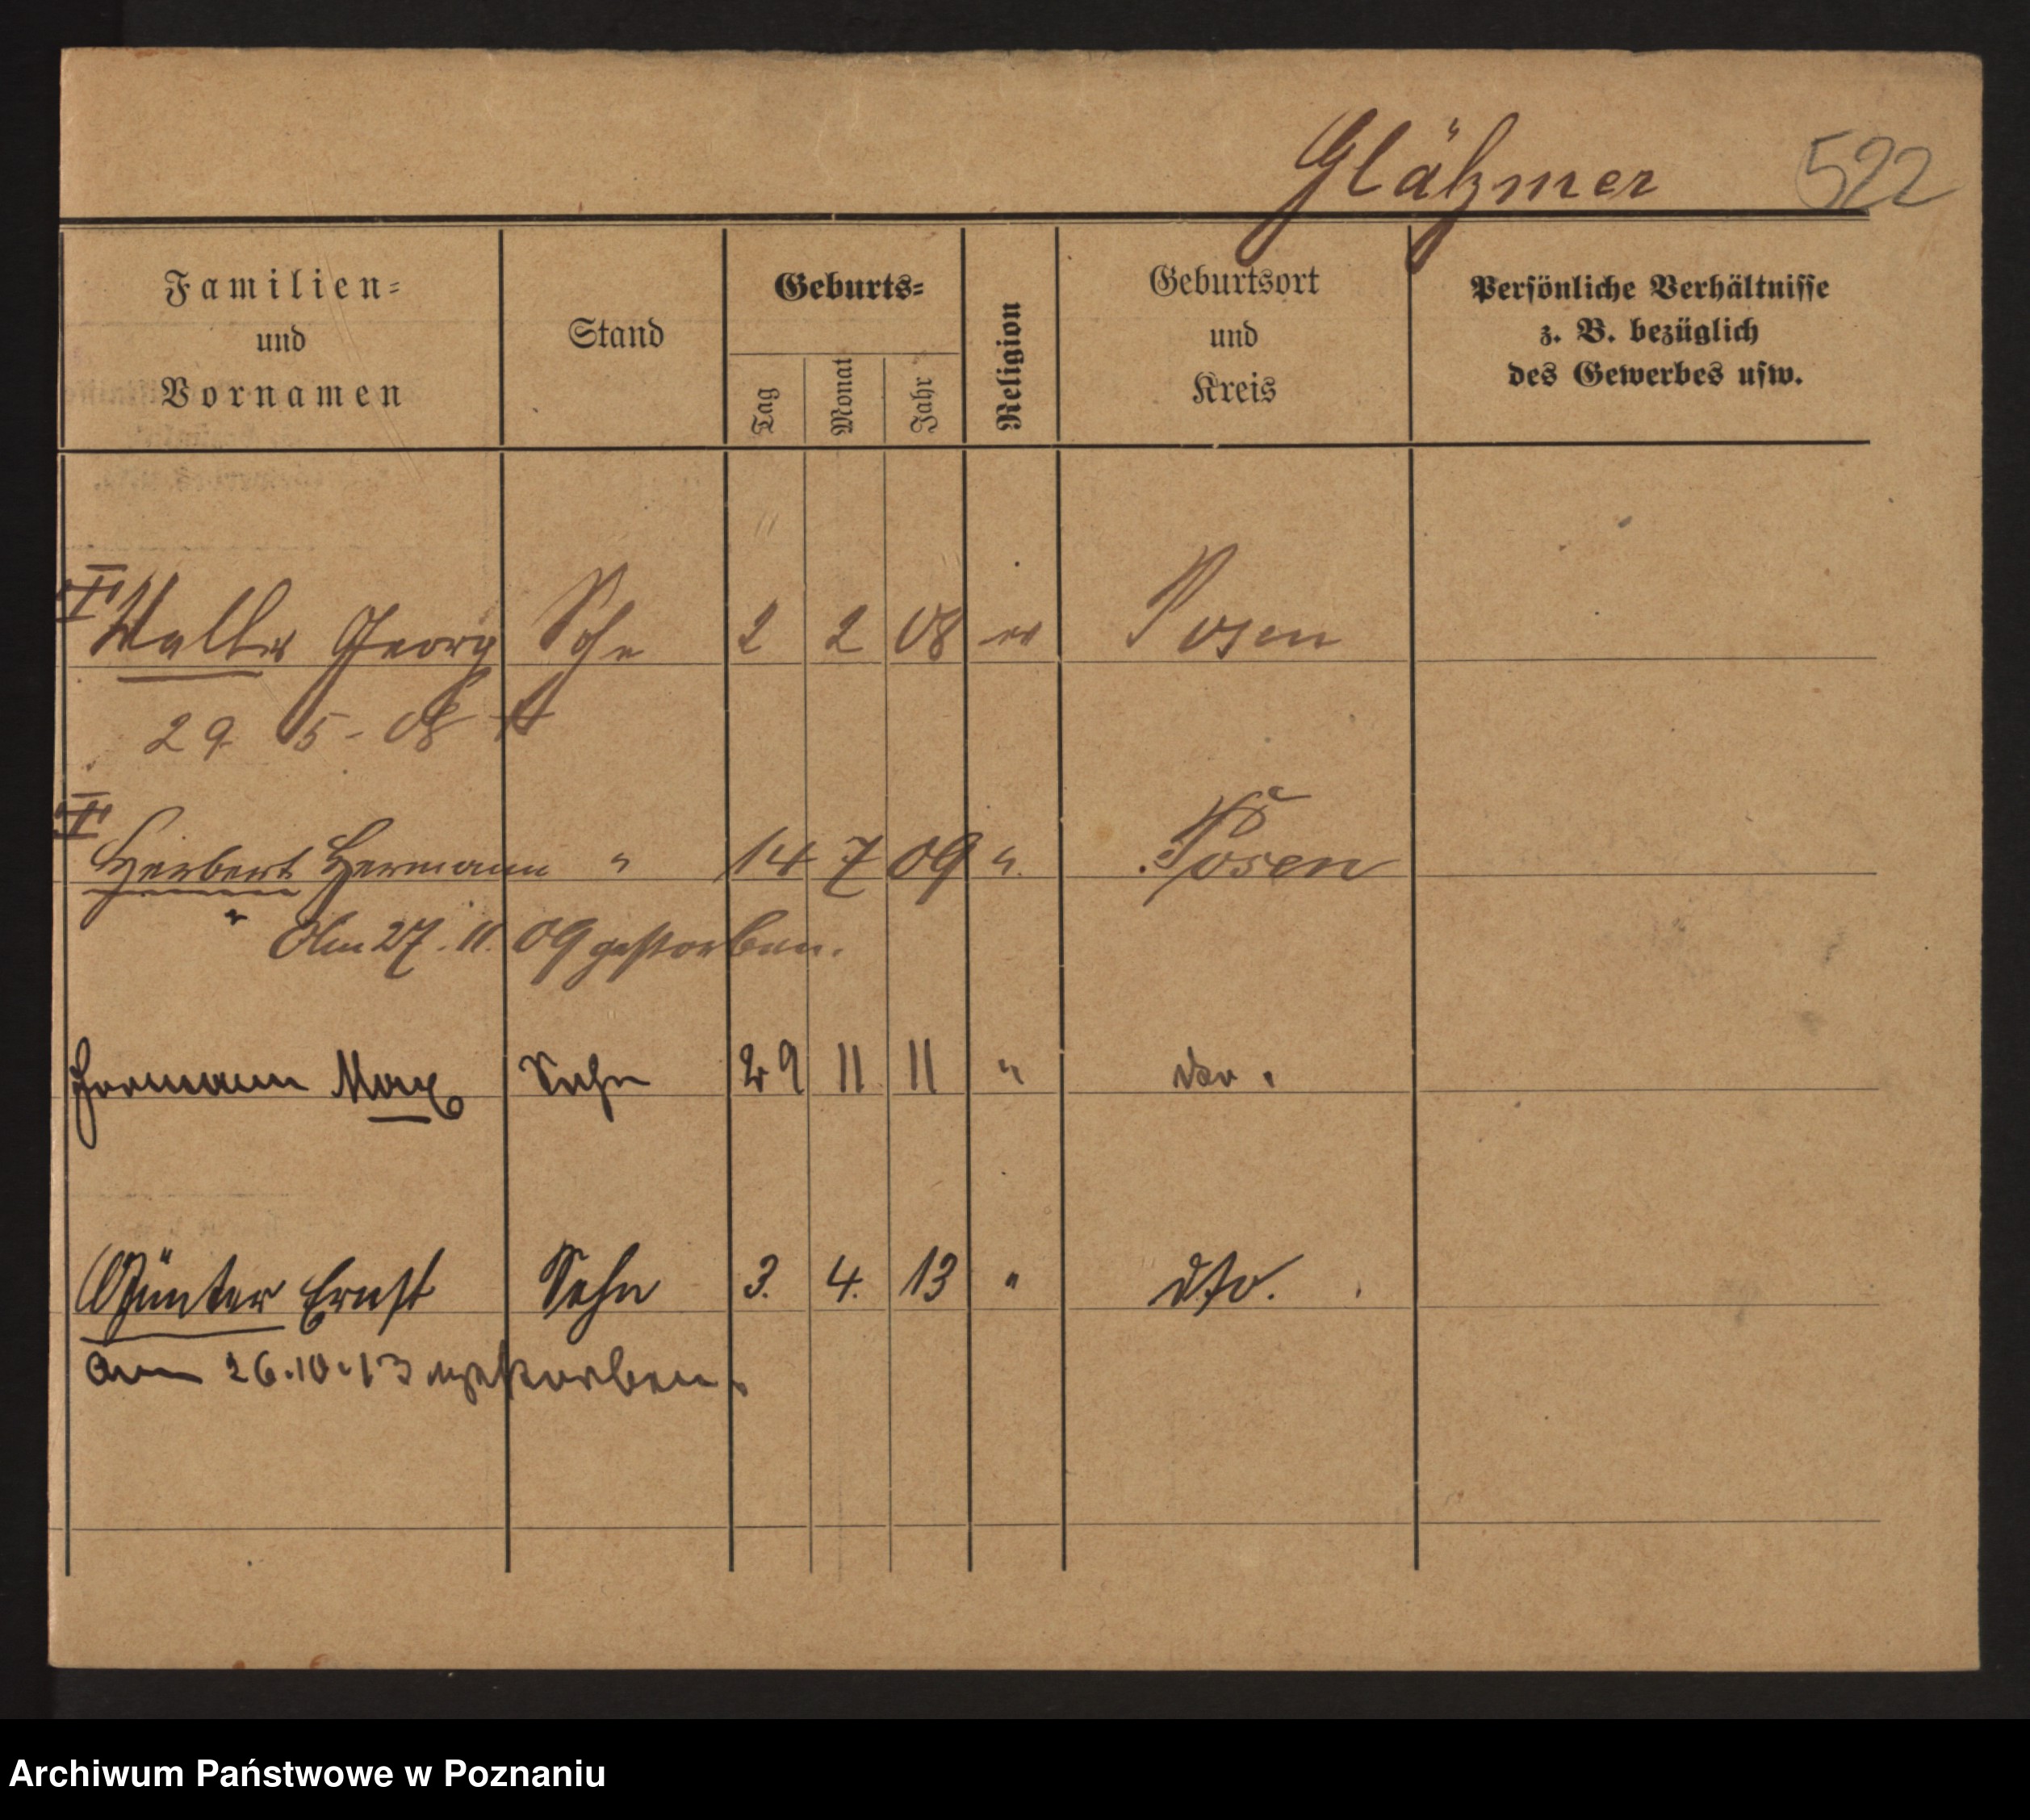 Glätzmer 522
Familien- und Vornamen
Stand
Geburts-
Tag
Monat
Jahr
Religion
Geburtsort und Kreis
Persönliche Verhältnisse z. B. bezüglich des Gewerbes usw.
Walter Georg Sohn 2 2 08 ev Posen
29. 5 - 08 †
Herbert Hermann " 14 7 09 " Posen
Am 27. 11. 09 gestorben.
Hermann Max Sohn 29 11 11 " dto.
Günter Ernst Sohn 3. 4. 13 " dto.
am 26.10.13 gestorben.
Archiwum Państwowe w Poznaniu